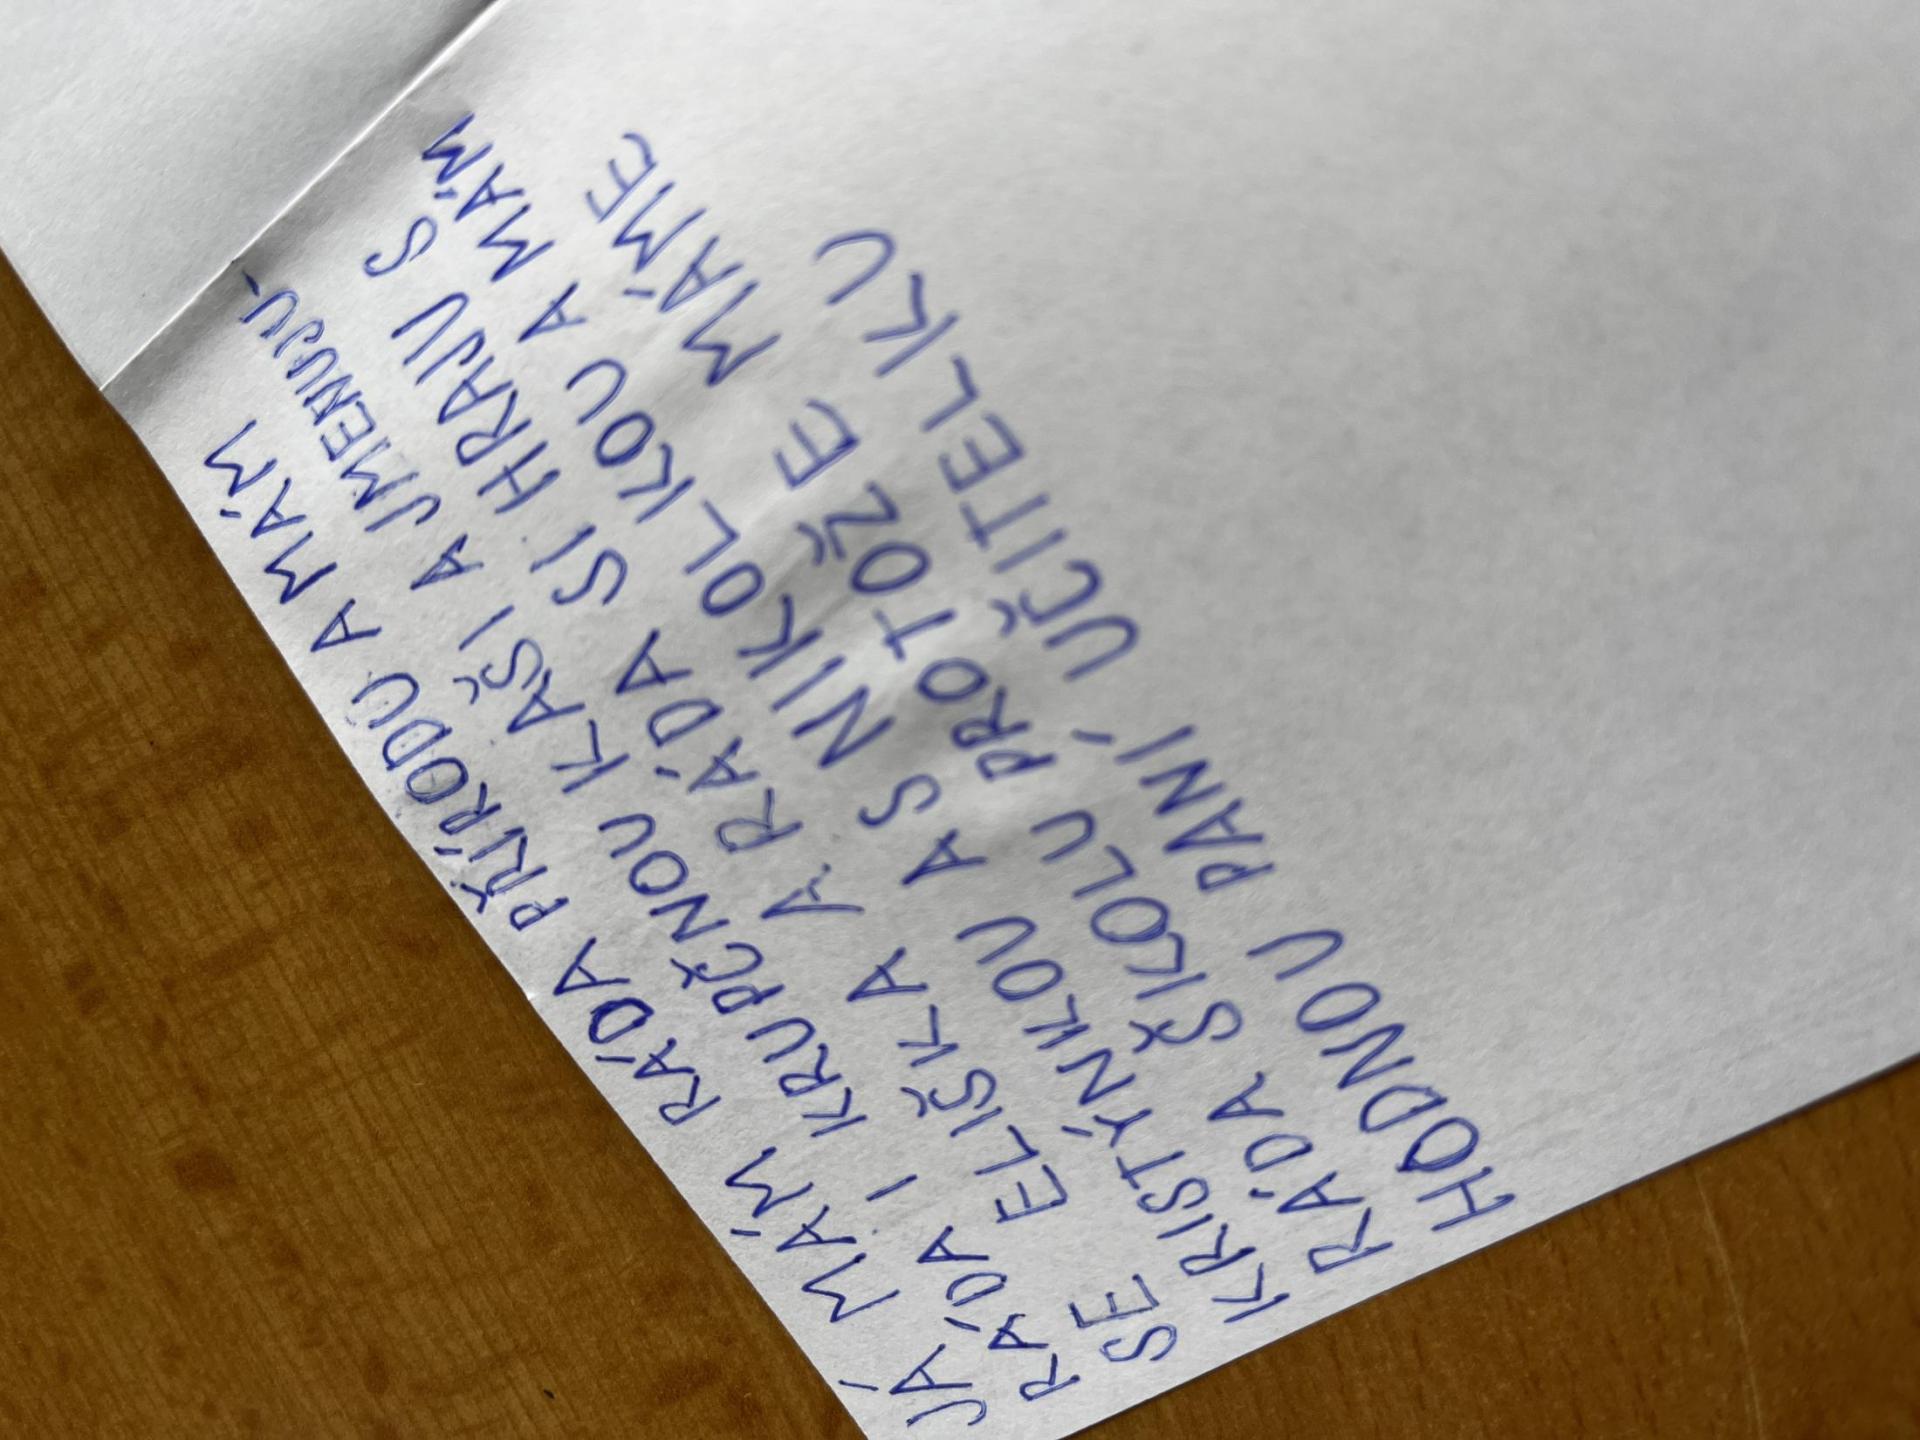 JÁ MÁM RÁDA PŘÍRODU A MÁM
RÁDA I KRUPĚNOU KAŠI A JMENUJU-
SE ELIŠKA A RÁDA SI HRAJU S
KRISTÝNKOU A S NIKOLKOU A MÁM MÁM
RÁDA ŠKOLU PROTOŽE MÁME
HODNOU PANÍ UČITELKU